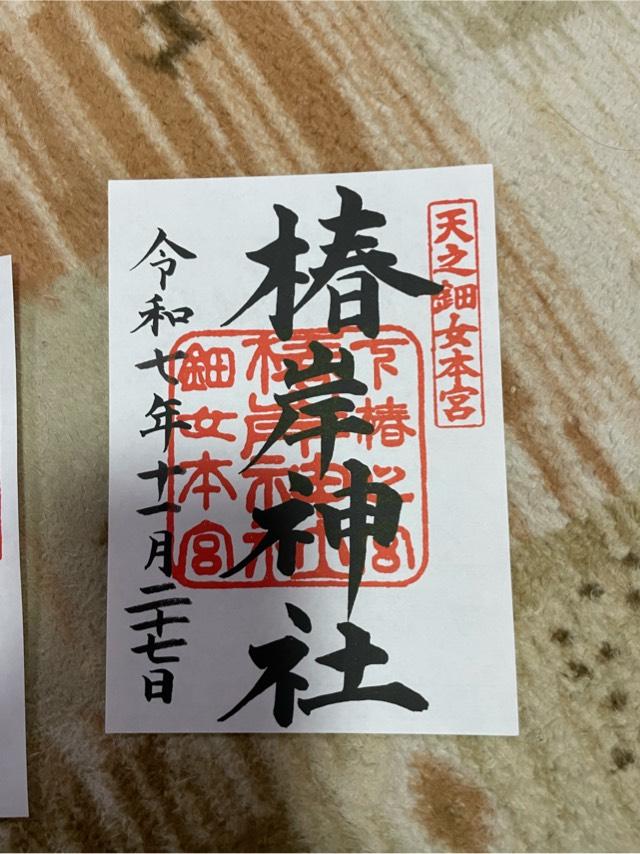 天之鈿女本宮
椿岸神社
鈿女本宮
令和七年十一月二十七日